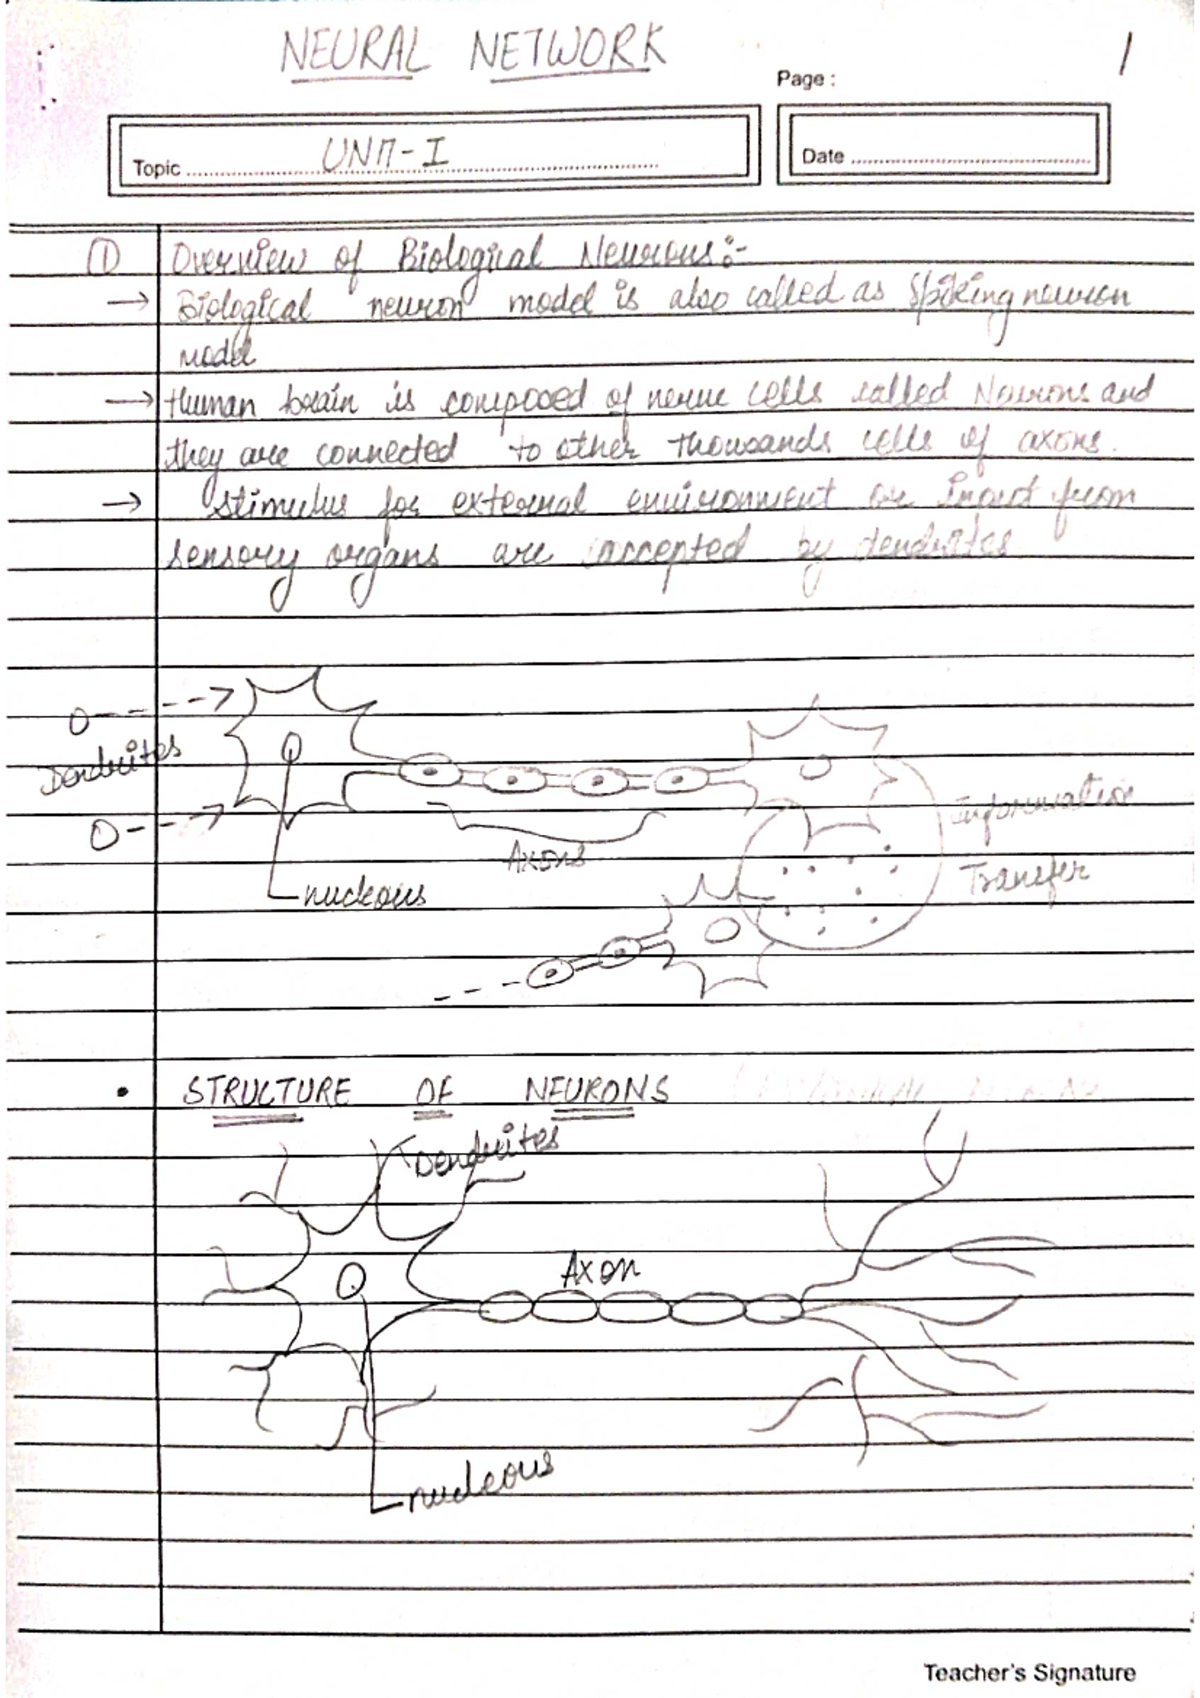 NEURAL NETWORK
1
Page :
Topic UNIT-I
Date
① Overview of Biological Neurons:-
→ Biological neuron model is also called as Spiking neuron
model
→ Human brain is composed of nerve cells called Neurons and
they are connected to other thousands cells of axons.
→ Stimulus for external environment or input from
sensory organs are accepted by dendrites
Dendrites
Axons
nucleous
Information
Transfer
• STRUCTURE OF NEURONS
Dendrites
Axon
nucleous
Teacher's Signature